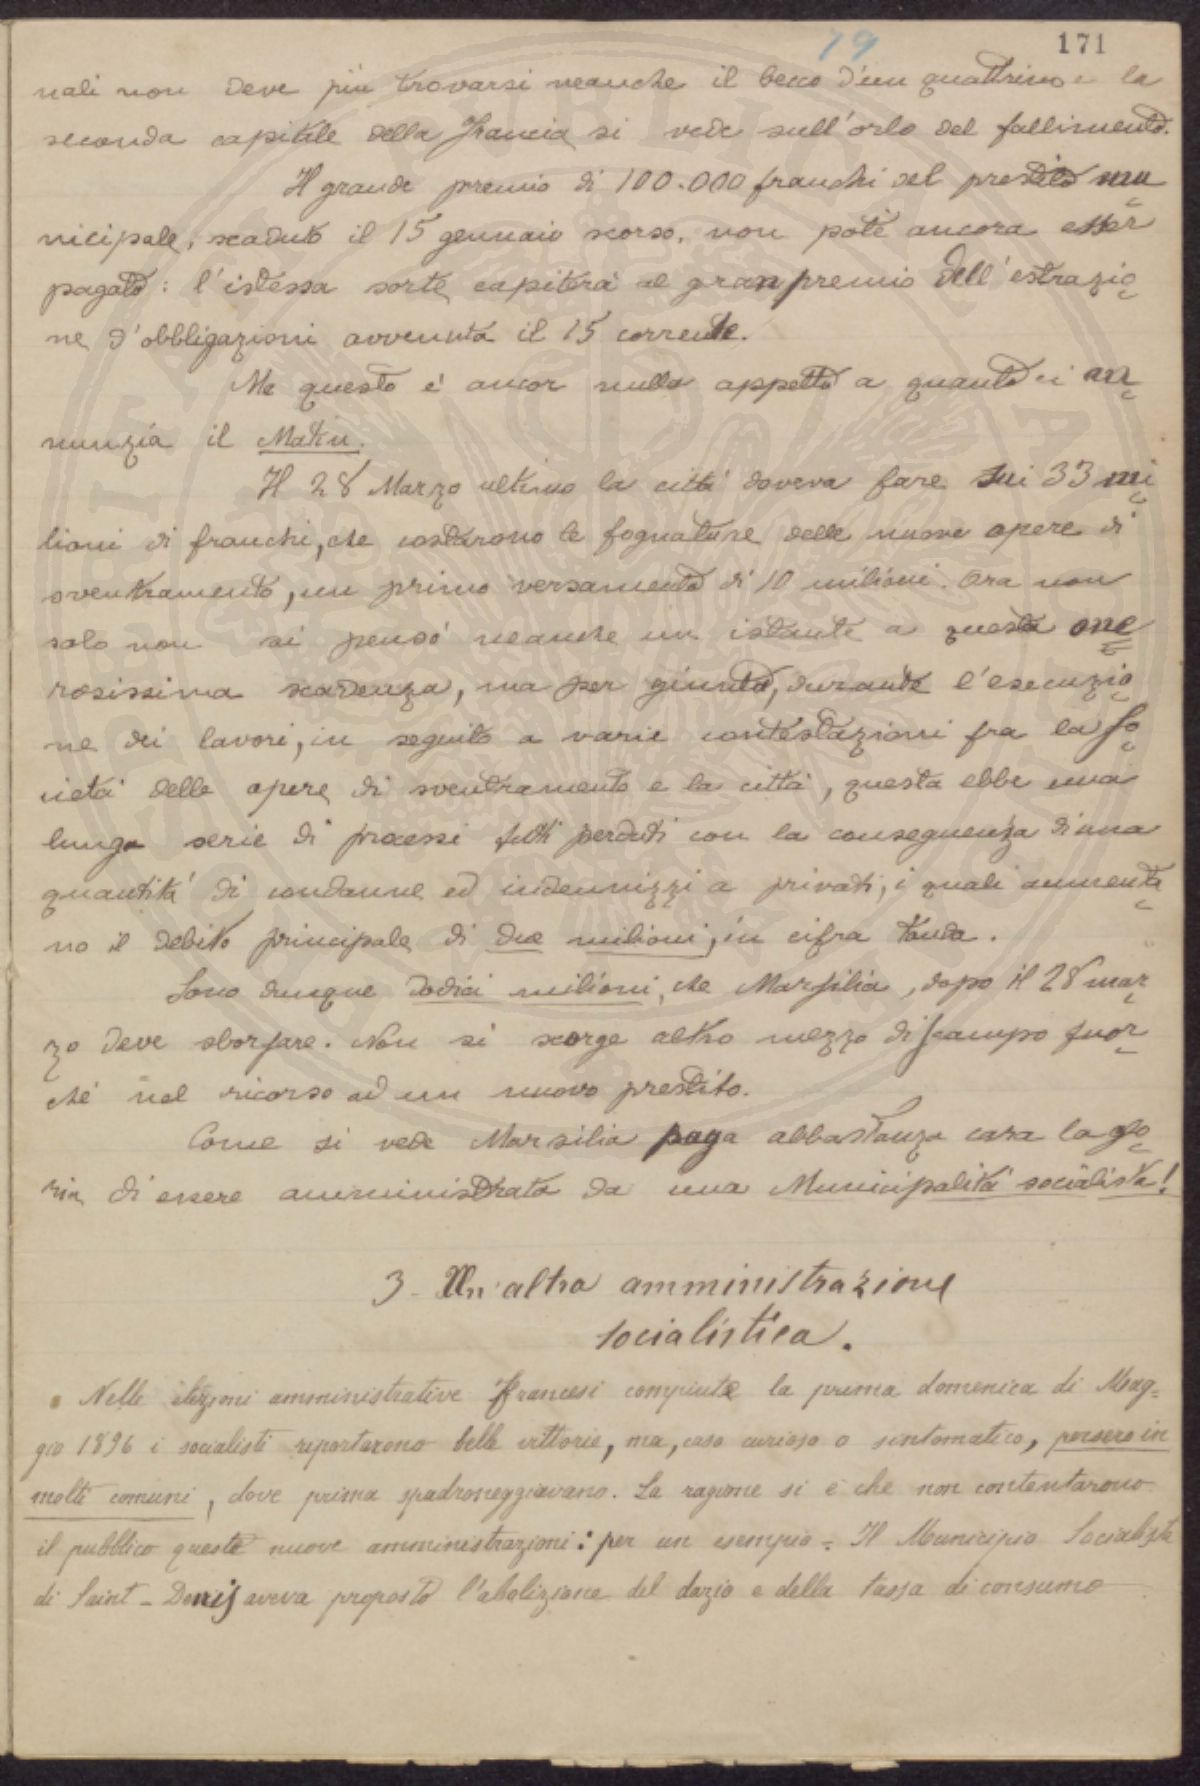 79 171
nali non deve più trovarsi neanche il becco d'un quattrino e la
seconda capitale della Francia si vede sull'orlo del fallimento.
Il grande premio di 100.000 franchi del prestito mu
nicipale, scaduto il 15 gennaio scorso, non potè ancora esser
pagato: l'istessa sorte capiterà al gran premio dell'estrazio
ne d'obbligazioni avvenuta il 15 corrente.
Ma questo è ancor nulla appetto a quanto ci an
nunzia il Matin.
Il 28 Marzo ultimo la città doveva fare sui 33 mi
lioni di franchi, che costarono le fognature delle nuove opere di
sventramento, un primo versamento di 10 milioni. Ora non
solo non si pensò neanche un istante a questa one
rosissima scadenza, ma per giunta, durante l'esecuzio
ne dei lavori, in seguito a varie contestazioni fra la So
cietà delle opere di sventramento e la città, questa ebbe una
lunga serie di processi tutti perduti con la conseguenza di una
quantità di condanne ed indennizzi a privati, i quali aumenta
no il debito principale di due milioni, in cifra tonda.
Sono dunque dodici milioni, che Marsilia, dopo il 28 mar
zo deve sborsare. Non si scorge altro mezzo di scampo fuor
chè nel ricorso ad un nuovo prestito.
Come si vede Marsilia paga abbastanza cara la glo
ria di essere amministrata da una Municipalità socialista!
3 - Un'altra amministrazione
socialistica.
Nelle elezioni amministrative francesi compiute la prima domenica di Mag=
gio 1896 i socialisti riportarono belle vittorie, ma, caso curioso o sintomatico, persero in
molti comuni, dove prima spadroneggiavano. La ragione si è che non contentarono
il pubblico queste nuove amministrazioni: per un esempio = Il Municipio Socialista
di Saint-Denis aveva proposto l'abolizione del dazio e della tassa di consumo